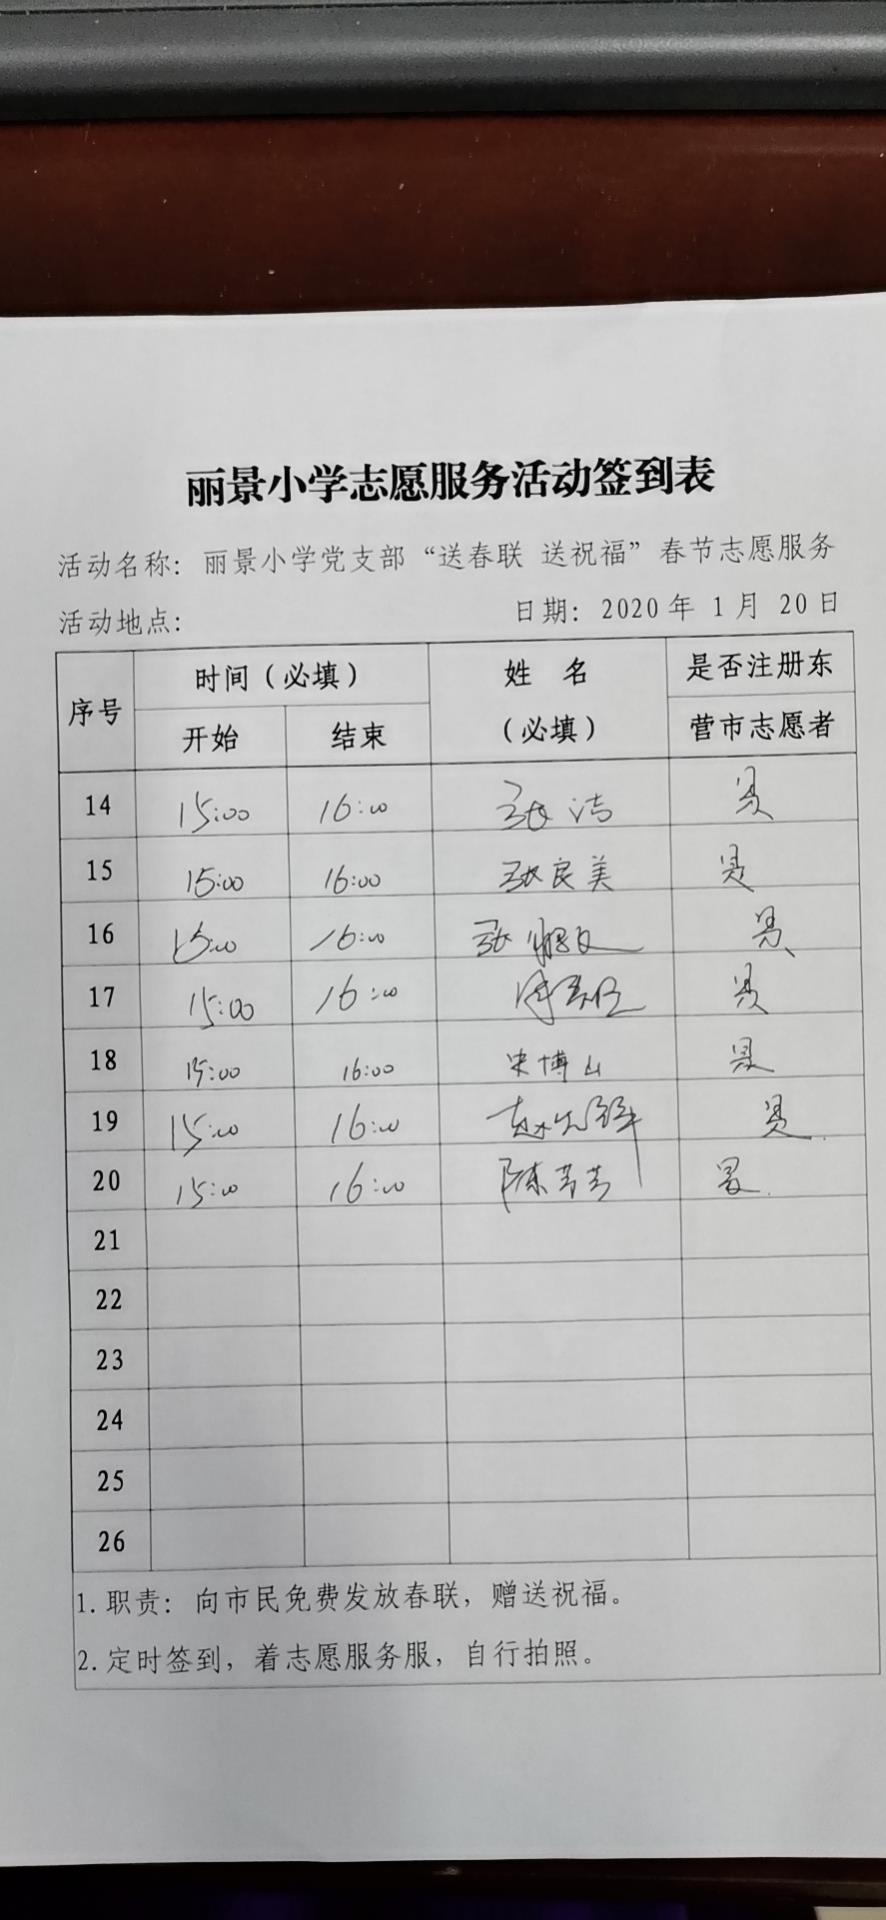 丽景小学志愿服务活动签到表
活动名称：丽景小学党支部“送春联 送祝福”春节志愿服务
活动地点： 日期：2020年 1月 20日
序号 时间（必填） 姓 名 是否注册东
开始 结束 （必填） 营市志愿者
14 15:00 16:00 张洁 是
15 15:00 16:00 张良美 是
16 15:00 16:00 张 是
17 15:00 16:00 是
18 15:00 16:00 宋博山 是
19 15:00 16:00 赵 是
20 15:00 16:00 陈芳芳 是
21
22
23
24
25
26
1.职责：向市民免费发放春联，赠送祝福。
2.定时签到，着志愿服务服，自行拍照。